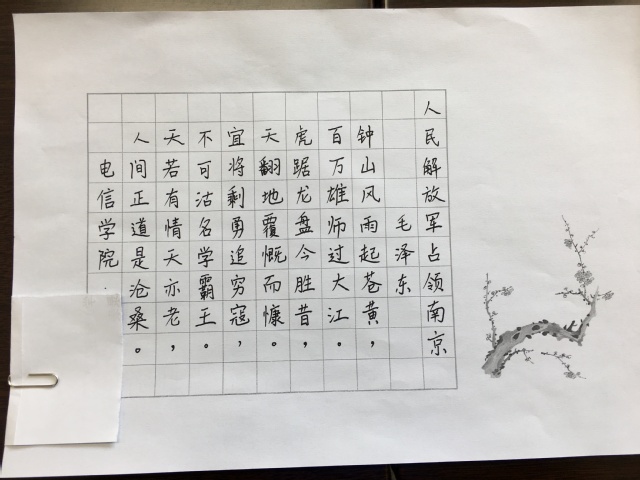 人民解放军占领南京
毛泽东
钟山风雨起苍黄，
百万雄师过大江。
虎踞龙盘今胜昔，
天翻地覆慨而慷。
宜将剩勇追穷寇，
不可沽名学霸王。
天若有情天亦老，
人间正道是沧桑。
电信学院